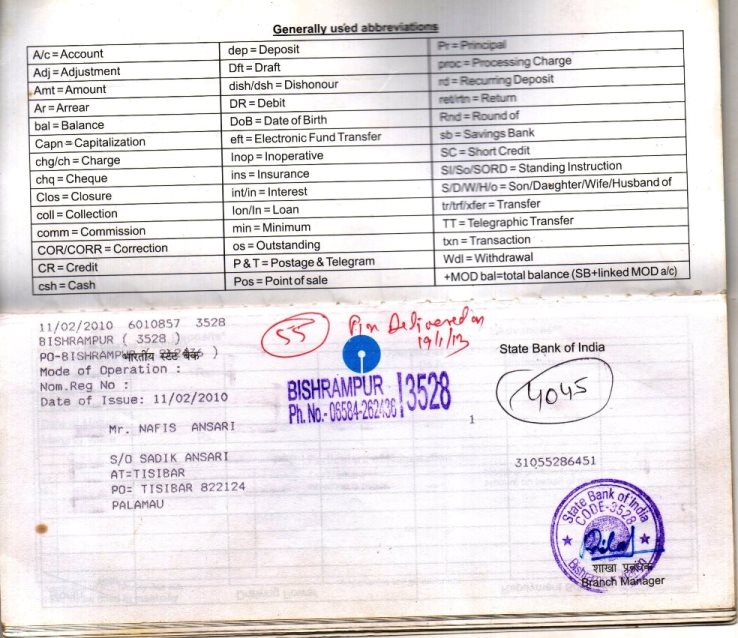 Generally used abbreviations
A/c = Account
Adj = Adjustment
Amt = Amount
Ar = Arrear
bal = Balance
Capn = Capitalization
chg/ch = Charge
chq = Cheque
Clos = Closure
coll = Collection
comm = Commission
COR/CORR = Correction
CR = Credit
csh = Cash
dep = Deposit
Dft = Draft
dish/dsh = Dishonour
DR = Debit
DoB = Date of Birth
eft = Electronic Fund Transfer
Inop = Inoperative
ins = Insurance
int/in = Interest
lon/ln = Loan
min = Minimum
os = Outstanding
P & T = Postage & Telegram
Pos = Point of sale
Pr = Principal
proc = Processing Charge
rd = Recurring Deposit
ret/rtn = Return
Rnd = Round of
sb = Savings Bank
SC = Short Credit
SI/So/SORD = Standing Instruction
S/D/W/H/o = Son/Daughter/Wife/Husband of
tr/trf/xfer = Transfer
TT = Telegraphic Transfer
txn = Transaction
Wdl = Withdrawal
+MOD bal=total balance (SB+linked MOD a/c)
11/02/2010 6010857 3528
BISHRAMPUR ( 3528 )
PO-BISHRAMPUR
भारतीय स्टेट बैंक
Mode of Operation :
Nom.Reg No :
Date of Issue: 11/02/2010
Mr. NAFIS ANSARI
S/O SADIK ANSARI
AT=TISIBAR
PO= TISIBAR 822124
PALAMAU
55
Pin Delivered on
19/1/13
BISHRAMPUR
Ph. No.- 06584-262436
3528
State Bank of India
4045
1
31055286451
State Bank of India
CODE-3528
शाखा प्रबंधक
Branch Manager